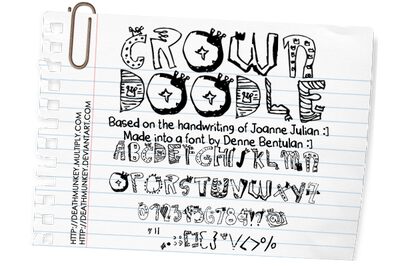 CROWN
DOODLE
Based on the handwriting of Joanne Julian :]
Made into a font by Denne Bentulan :]
ABCDEFGHIJKLMN
OPQRSTUVWXYZ
0123456789
HTTP://DEATHMUNKEY.MULTIPLY.COM
HTTP://DEATHMUNKEY.DEVIANTART.COM